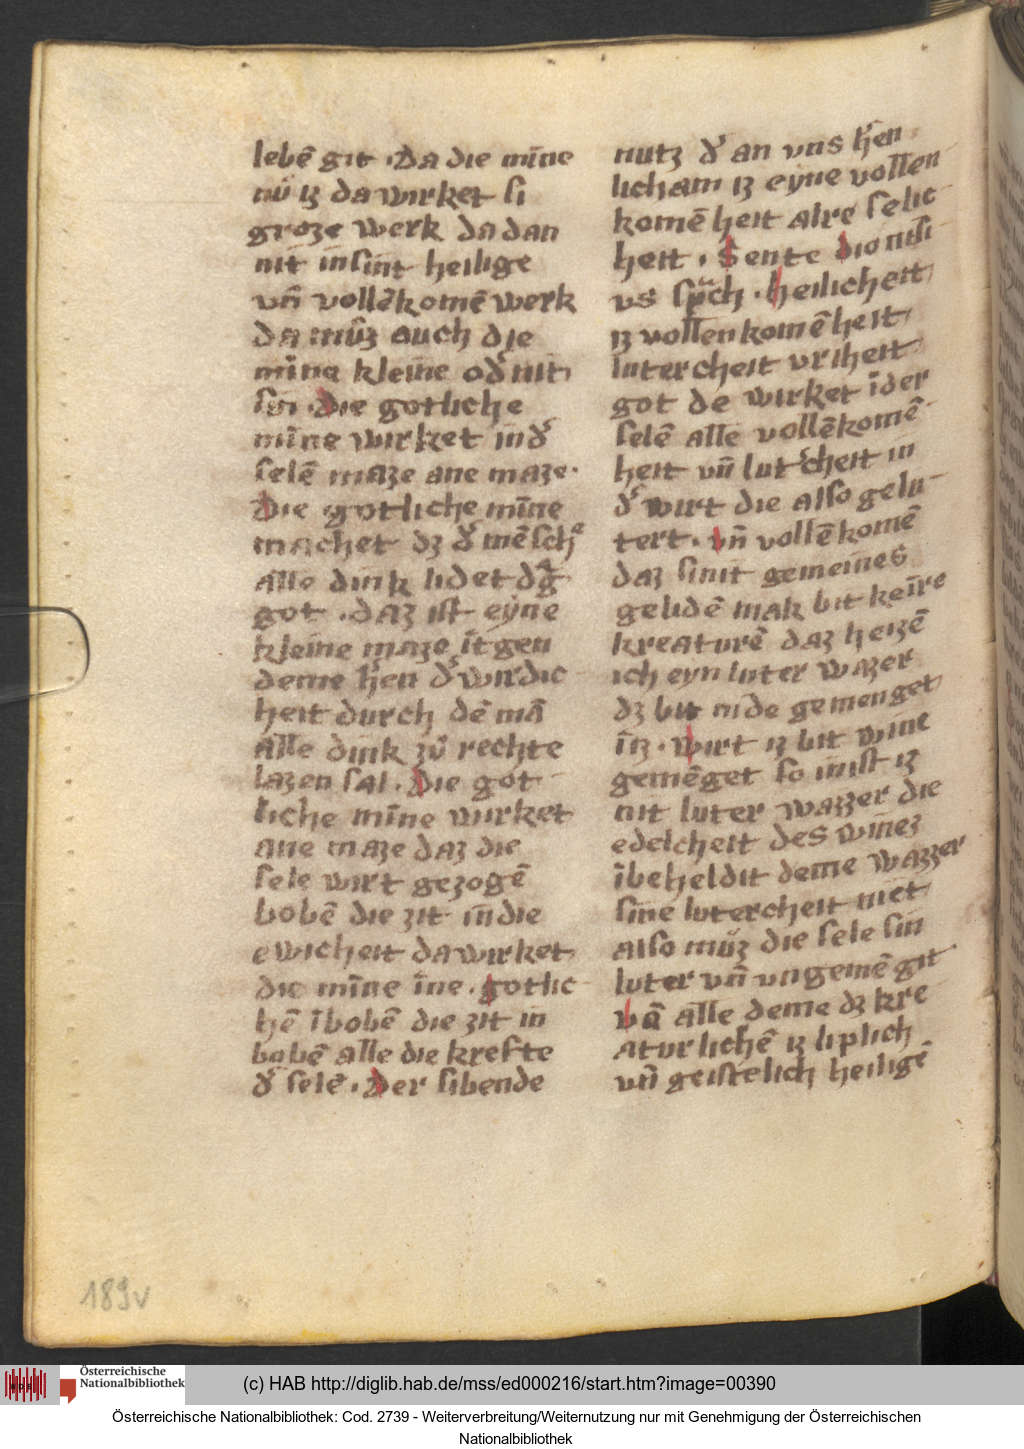 lebē git · Da die mīne
nū iz da wirket si
groze werk da dan
nit insint heilige
vn̄ vollēkomē werk
da mu̓z auch die
mīne kleine od̓ nit
sin · Die gotliche
mīne wirket in d̓
selē maze ane maze ·
Die gotliche mīne
machet dz d̓ mēsche
alle dink lidet dᵃ
got · daz ist eyne
kleine maze ītgen
deme h̓en d̓ wirdic
heit durch dē mā
alle dink zu̓ rechte
lazen sal · Die got
liche mīne wirket
ane maze daz die
sele wirt gezogē
bobē die zit in die
ewicheit da wirket
die mīne īne · gotlic
hē ībobē die zit in
bobē alle die krefte
d̓ selē · Der sibende
nutz d̓ an vns h̓en
licham iz eyne vollen
komē heit alre selic
heit · Sente dionisi
vs sp̄ch · Heilicheit
iz vollenkomē heit
lutercheit vriheit
got de wirket īder
selē alle vollēkomē
heit vn̄ lut̓cheit in
d̓ wirt die also gelu
tert · vn̄ vollēkomē
daz sinit gemeines
gelidē mak bit keīre
kreaturē daz heizē
ich eyn luter wazer
dz bit nide gemenget
īz · Wirt iz bit wine
gemēget so inist iz
nit luter wazzer die
edelcheit des winez
ībeheldit deme wazzer
sine lutercheit niet
also mu̓z die sele sin
luter vn̄ vngemēgit
vā alle deme dz kre
aturlichē iz liplich
vn̄ geistelich heiligē
189v
Österreichische
Nationalbibliothek
(c) HAB http://diglib.hab.de/mss/ed000216/start.htm?image=00390
Österreichische Nationalbibliothek: Cod. 2739 - Weiterverbreitung/Weiternutzung nur mit Genehmigung der Österreichischen
Nationalbibliothek